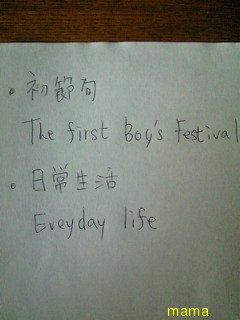 • 初節句
The first Boy's Festival
• 日常生活
Eveyday life
mama